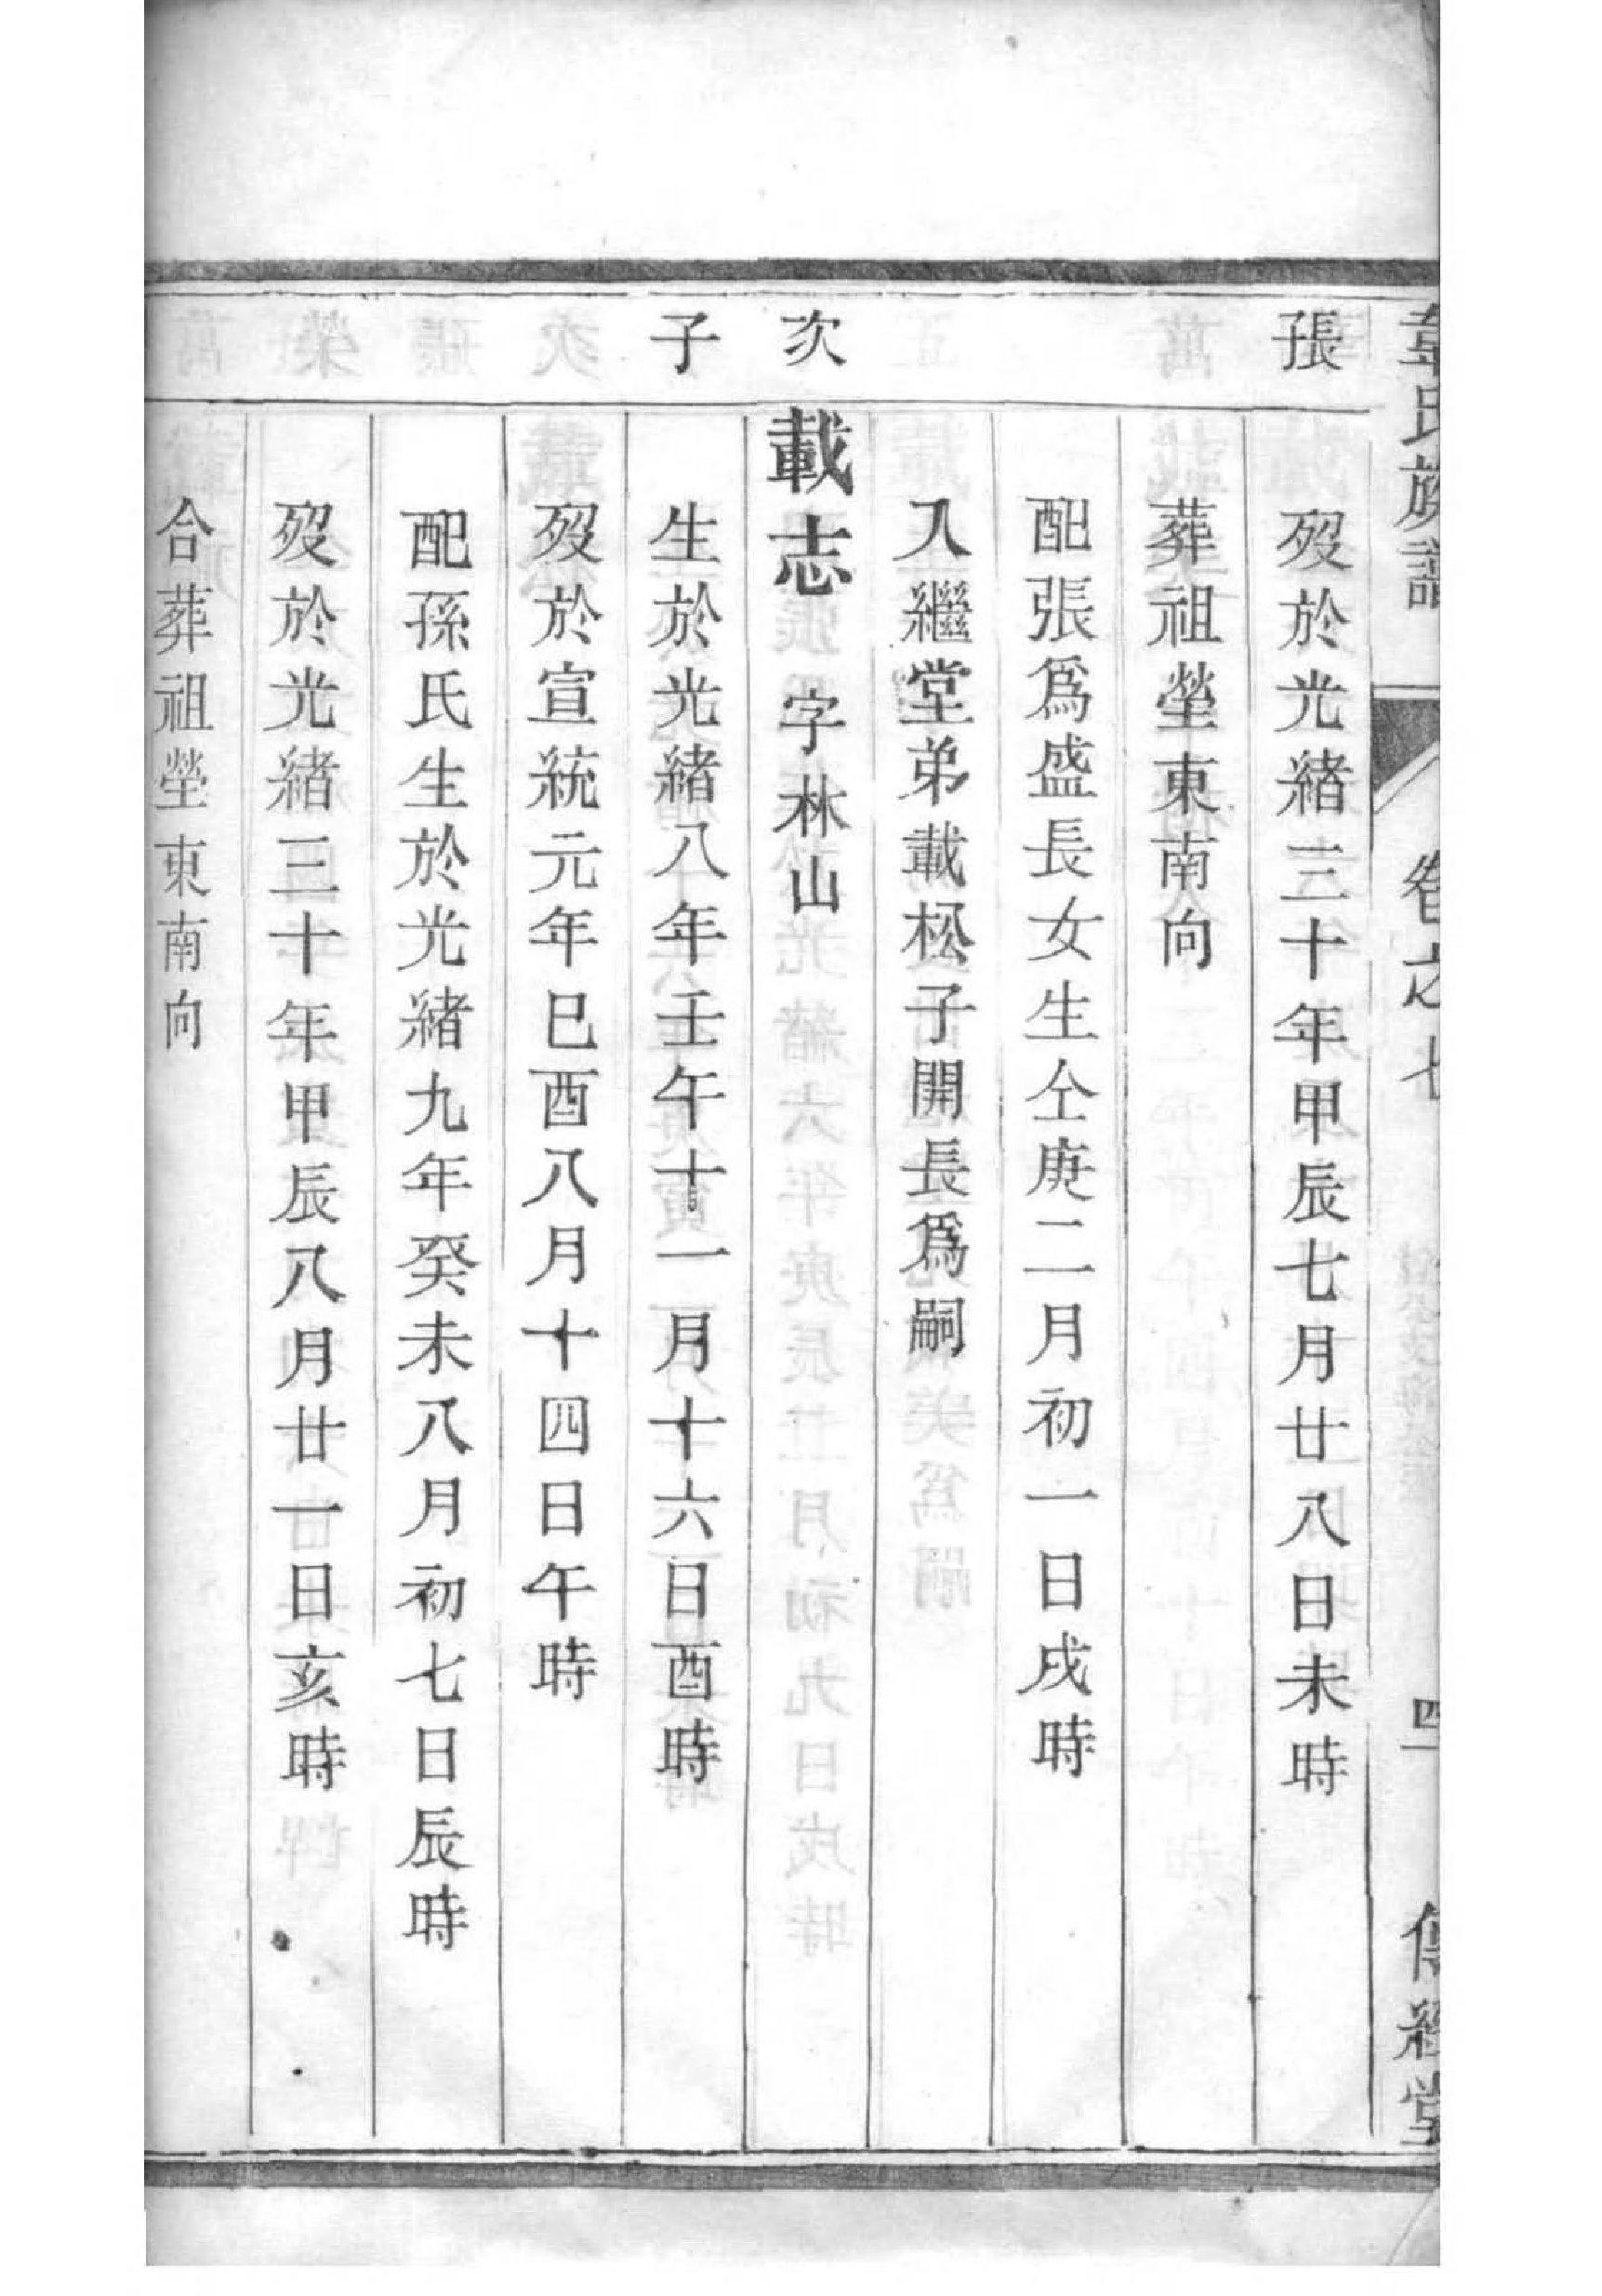 韋氏族譜 卷之七 四 傳經堂
張
歿於光緒三十年甲辰七月廿八日未時
葬祖塋東南向
配張爲盛長女生仝庚二月初一日戌時
入繼堂弟載松子開長爲嗣
次 載志 字林山
子 生於光緒八年壬午十一月十六日酉時
歿於宣統元年巳酉八月十四日午時
配孫氏生於光緒九年癸未八月初七日辰時
歿於光緒三十年甲辰八月廿一日亥時
合葬祖塋東南向